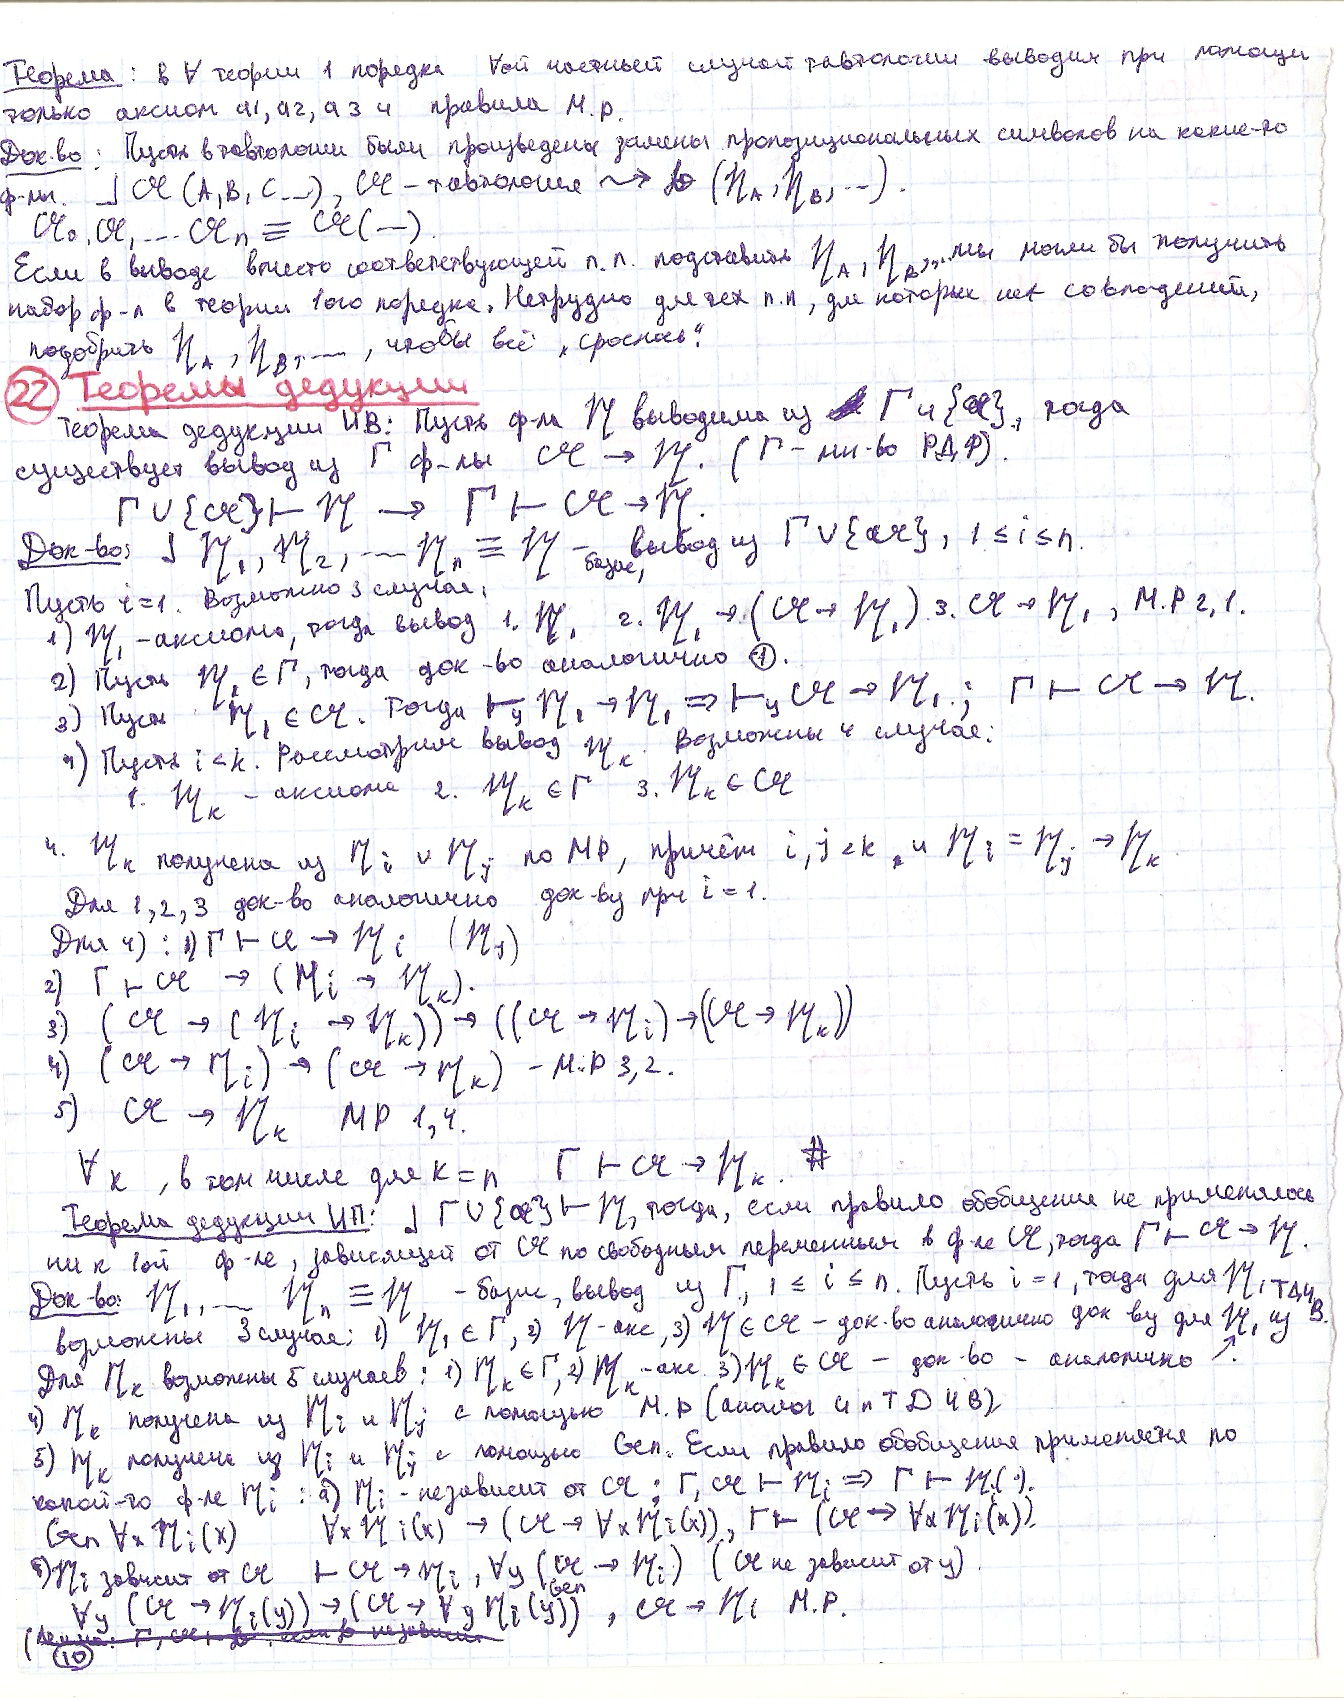 Теорема: в ∀ теории 1 порядка ∀ой частный случай тавтологии выводим при помощи
только аксиом а1, а2, а3 и правила М.Р.
Док-во: Пусть в тавтологии были произведены замены пропозициональных символов на какие-то
ф-лы. ⅃ 𝔄 (A, B, C ...), 𝔄 - тавтология ⇝ 𝔟 (η_A, η_B, ...).
𝔄₀, 𝔄₁ ... 𝔄ₙ ≡ 𝔄(...).
Если в выводе вместо соответствующей п.п. подставить η_A, η_B, ... мы могли бы получить
набор ф-л в теории 1ого порядка. Нетрудно для тех п.п, для которых нет совпадений,
подобрать η_A, η_B, ..., чтобы всё „срослось".
22 Теоремы дедукции
Теорема дедукции ИВ: Пусть ф-ла η выводима из Γ и {𝔄}, тогда
существует вывод из Γ ф-лы 𝔄 → η. (Γ - мн-во ППФ).
Γ ∪ {𝔄} ⊢ η → Γ ⊢ 𝔄 → η.
Док-во: ⅃ η₁, η₂, ... ηₙ ≡ η - вывод из Γ ∪ {𝔄}, 1 ≤ i ≤ n.
базис,
Пусть i = 1. Возможно 3 случая:
1) η₁ - аксиома, тогда вывод 1. η₁ 2. η₁ → (𝔄 → η₁) 3. 𝔄 → η₁, М.Р 2, 1.
2) Пусть η₁ ∈ Γ, тогда док-во аналогично ①.
3) Пусть η₁ ∈ 𝔄. Тогда ⊢ η₁ → η₁ ⇒ ⊢ 𝔄 → η₁; Γ ⊢ 𝔄 → η.
4) Пусть i < k. Рассмотрим вывод η_k. Возможны 4 случая:
1. η_k - аксиома 2. η_k ∈ Γ 3. η_k ∈ 𝔄
4. η_k получена из η_i и η_j по МР, причём i, j < k, и η_i = η_j → η_k
Для 1, 2, 3 док-во аналогично док-ву при i = 1.
Для 4): 1) Γ ⊢ 𝔄 → η_i (η_j)
2) Γ ⊢ 𝔄 → (η_i → η_k).
3) (𝔄 → (η_i → η_k)) → ((𝔄 → η_i) → (𝔄 → η_k))
4) (𝔄 → η_i) → (𝔄 → η_k) - М.Р 3, 2.
5) 𝔄 → η_k МР 1, 4.
∀k, в том числе для k = n Γ ⊢ 𝔄 → η_k. #
Теорема дедукции ИП: ⅃ Γ ∪ {𝔄} ⊢ η, тогда, если правило обобщения не применялось
ни к 1ой ф-ле, зависящей от 𝔄 по свободным переменным в ф-ле 𝔄, тогда Γ ⊢ 𝔄 → η.
Док-во: η₁, ... ηₙ ≡ η - базис, вывод из Γ, 1 ≤ i ≤ n. Пусть i = 1, тогда для η₁
возможны 3 случая: 1) η₁ ∈ Γ, 2) η - акс, 3) η ∈ 𝔄 - док-во аналогично док ву для η₁ из ТДИВ.
Для η_k возможны 5 случаев: 1) η_k ∈ Γ, 2) η_k - акс. 3) η_k ∈ 𝔄 - док-во - аналогично ↗.
4) η_k получена из η_i и η_j с помощью М.Р (аналог 4 п ТДИВ)
5) η_k получена из η_i и η_j с помощью Gen. Если правило обобщения применяется по
какой-то ф-ле η_i: а) η_i - независит от 𝔄; Γ, 𝔄 ⊢ η_i ⇒ Γ ⊢ η_i(·).
Gen ∀x η_i(x) ∀x η_i(x) → (𝔄 → ∀x η_i(x)), Γ ⊢ (𝔄 → ∀x η_i(x)).
б) η_i зависит от 𝔄 ⊢ 𝔄 → η_i, ∀y (𝔄 → η_i) (𝔄 не зависит от y).
Gen
∀y (𝔄 → η_i(y)) → (𝔄 → ∀y η_i(y)), 𝔄 → η_i М.Р.
10